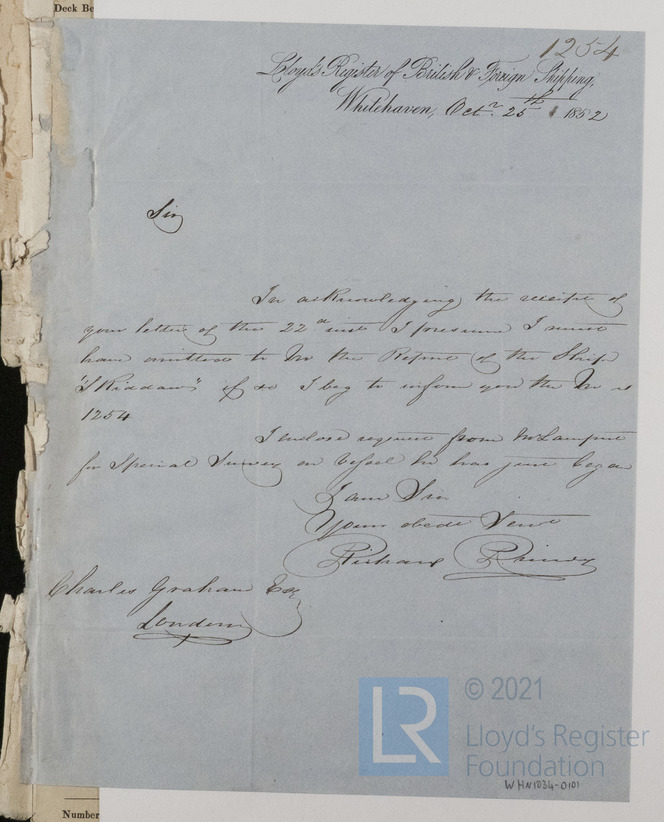 Deck Be
1254
Lloyd's Register of British & Foreign Shipping,
Whitehaven, Octr. 25th 1852
Sir
In acknowledging the receipt of
your letter of the 22d inst I presume I must
have omitted to No the Report of the Ship
"Skiddaw" if so I beg to inform you the No is
1254
I enclose request from Mr
for Special Survey on Vessel he has just began
I am Sir
Your obedt Servt
Richard
Charles Graham Esq
London
LR
© 2021
Lloyd's Register
Foundation
WHN1034-0101
Number